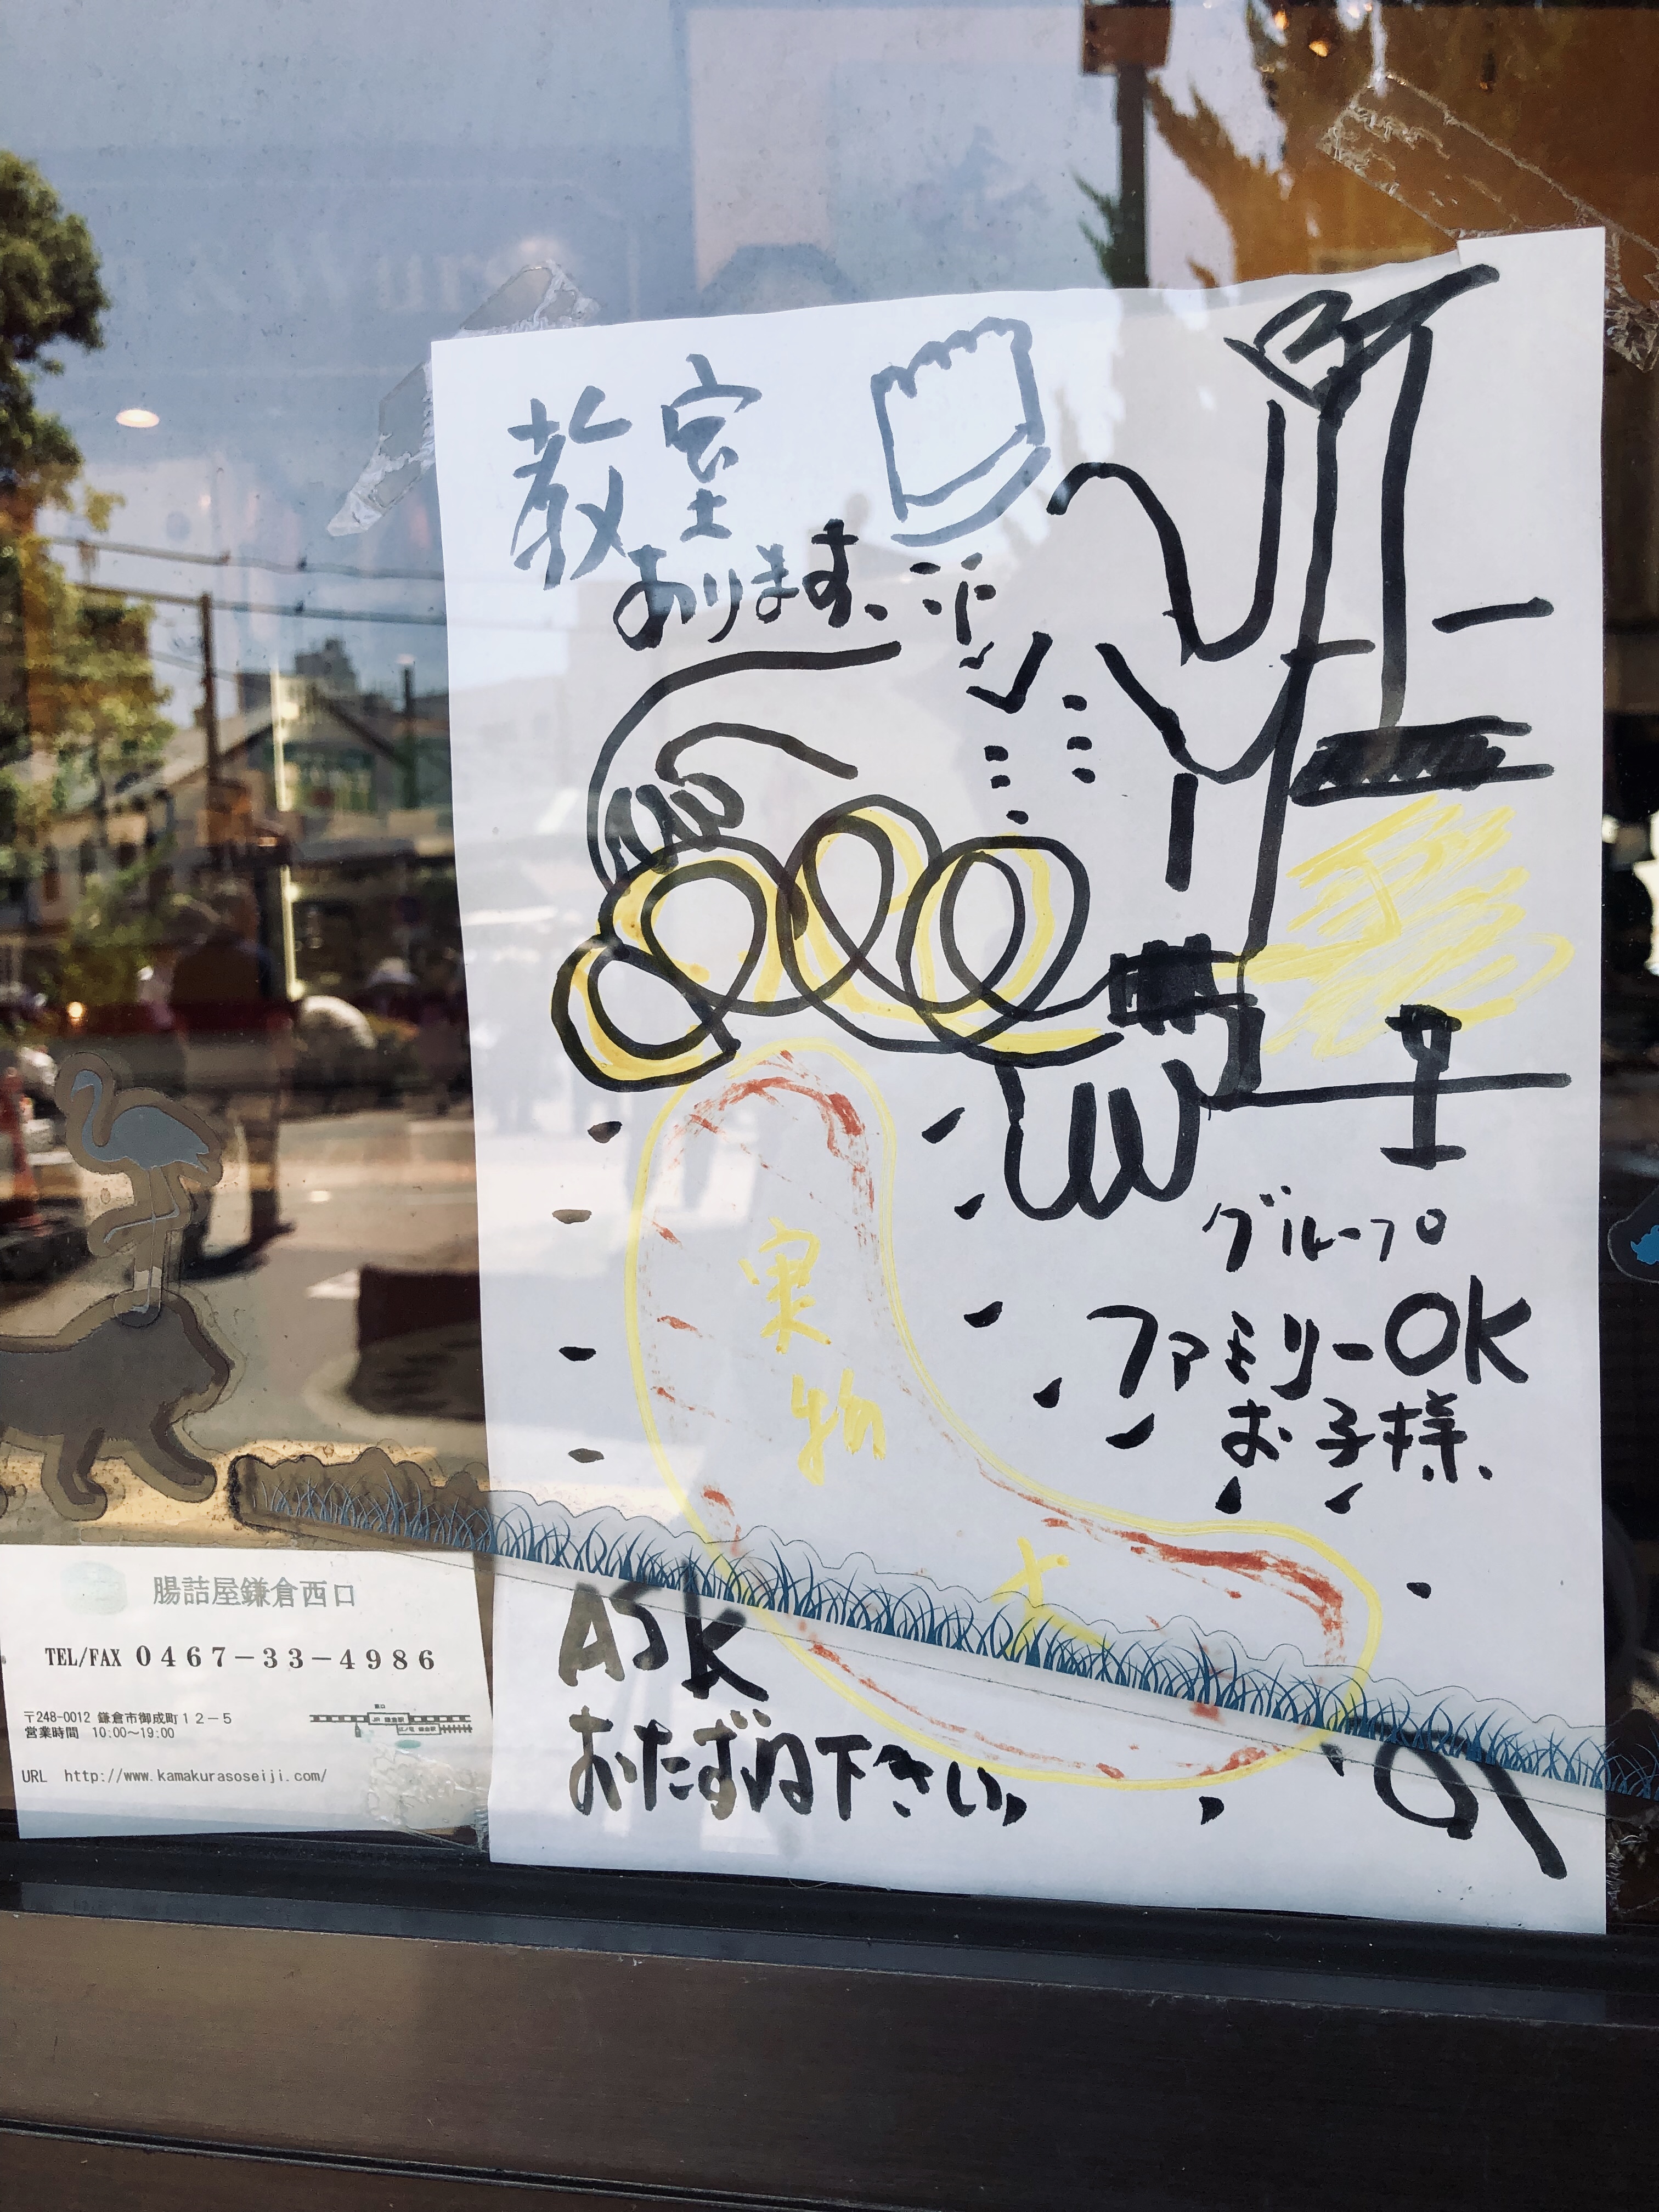 教室
あります、
グループ
ファミリーOK
お子様、
実物
大
ASK
おたずね下さい。
腸詰屋鎌倉西口
TEL/FAX 0467-33-4986
〒248-0012 鎌倉市御成町12-5
営業時間 10:00~19:00
URL http://www.kamakurasoseiji.com/